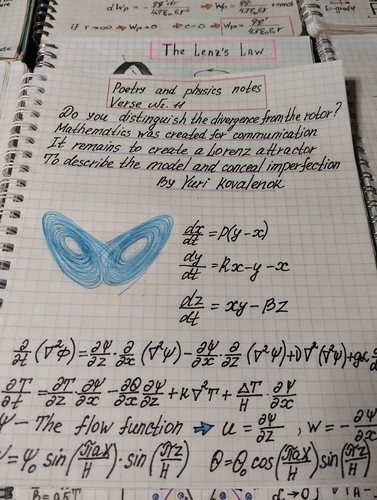 dWp = - qq'dr / 4πε₀εr² ⇒ Wp = qq' / 4πε₀εr + const
if r→∞ ⇒ Wp→0 ⇒ c=0 ⇒ Wp = qq' / 4πε₀εr
The Lenz's Law
Poetry and physics notes
Verse №. 11
Do you distinguish the divergence from the rotor?
Mathematics was created for communication
It remains to create a Lorenz attractor
To describe the model and conceal imperfection
By Yuri Kovalenok
dx/dt = P(y-x)
dy/dt = Rx-y-x
dz/dt = xy-βz
∂/∂t (∇²Φ) = ∂Ψ/∂z · ∂/∂x (∇²Ψ) - ∂Ψ/∂x · ∂/∂z (∇²Ψ) + υ∇²(∇²Ψ) + gα
∂T/∂t = ∂T/∂z ∂Ψ/∂x - ∂Θ/∂x ∂Ψ/∂z + κ∇²T + ΔT/H · ∂Ψ/∂x
Ψ - The flow function ⇒ u = ∂Ψ/∂z , w = - ∂Ψ/∂x
Ψ = Ψ₀ sin(πax/H) · sin(πz/H) Θ = Θ₀ cos(πax/H) sin(πz/H)